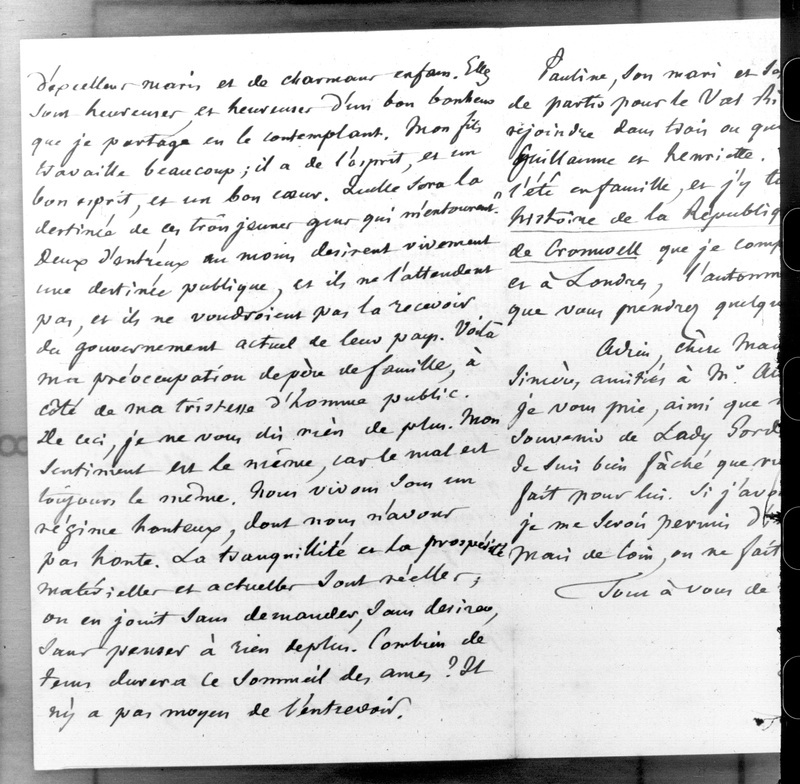 d'excellens maris et de charmans enfans. Elles
sont heureuses, et heureuses d'un bon bonheur
que je partage en le contemplant. Mon fils
travaille beaucoup; il a de l'esprit, et un
bon esprit, et un bon cœur. Quelle sera la
destinée de ces trois jeunes gens qui m'entourent?
Deux d'entr'eux au moins desirent vivement
une destinée publique, et ils ne l'attendent
pas, et ils ne voudroient pas la recevoir
du gouvernement actuel de leur pays. Voilà
ma préoccupation de père de famille, à
côté de ma tristesse d'homme public.
De ceci, je ne vous dis rien de plus. Mon
sentiment est le même, car le mal est
toujours le même. Nous vivons sous un
régime honteux, dont nous n'avons
pas honte. La tranquilité et la prospérité
matérielles et actuelles sont réelles;
on en jouit sans demander, sans desirer,
sans penser à rien de plus. Combien de
tems durera ce sommeil des ames? Il
n'y a pas moyen de l'entrevoir.
Pauline, son mari et
de partir pour le Val Ri
rejoindre dans trois ou
Guillaume et henriette.
l'été en famille, et j'y
histoire de la Républiq
de Cromwell que je
et à Londres, l'automn
que vous prendrez quelqu
Adieu, chère
sincères amitiés à Mr.
je vous prie, ainsi que
souvenir de Lady
Je suis bien fâché que
fait pour lui. Si j'av
je me serois permis
mais de loin, on ne fait
Tout à vous de